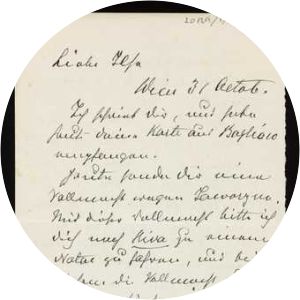 Liebe Ilse
Wien 31 Octob.
Ich schrieb dir, und habe
heute deine Karte aus Bogliaco
empfangen.
Heute sende dir eine
Vollmacht wegen
Mit dieser Vollmacht bitte ich
dich nach Riva zu einem
Notar zu fahren, und bei
die Vollmacht